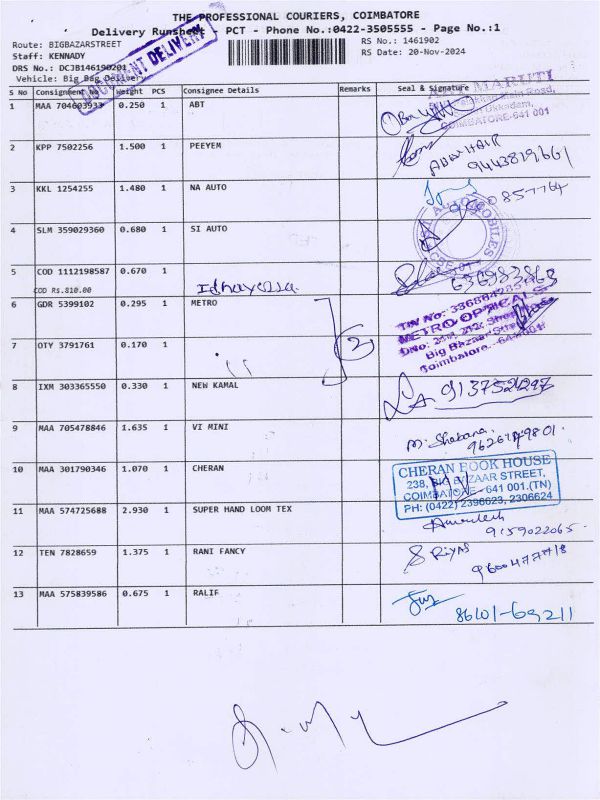 THE PROFESSIONAL COURIERS, COIMBATORE
Delivery Runsheet - PCT - Phone No.:0422-3505555 - Page No.:1
DOCUMENT DELIVERY
Route: BIGBAZARSTREET
Staff: KENNADY
DRS No.: DCJB146190201
Vehicle: Big Bag Delivery
RS No.: 1461902
RS Date: 20-Nov-2024
S No Consignment No Weight PCS Consignee Details Remarks Seal & Signature
1 MAA 704603933 0.250 1 ABT
MARUTI
Main Road,
Ukkadam,
COIMBATORE-641 001
2 KPP 7502256 1.500 1 PEEYEM
9443819661
3 KKL 1254255 1.480 1 NA AUTO
4 SLM 359029360 0.680 1 SI AUTO
AUTOMOBILES
5 COD 1112198587 0.670 1
COD Rs.810.00
Idhayassa
6 GDR 5399102 0.295 1 METRO
METRO OPTICALS
Big Bazaar Street
Coimbatore.-641001
7 OTY 3791761 0.170 1
2
8 IXM 303365550 0.330 1 NEW KAMAL
9 MAA 705478846 1.635 1 VI MINI
M. Shabana.
10 MAA 301790346 1.070 1 CHERAN
CHERAN BOOK HOUSE
238, BIG BAZAAR STREET,
COIMBATORE - 641 001.(TN)
PH: (0422) 2396623, 2306624
11 MAA 574725688 2.930 1 SUPER HAND LOOM TEX
9159022065.
12 TEN 7828659 1.375 1 RANI FANCY
RIYAS
13 MAA 575839586 0.675 1 RALIF
86101-69211